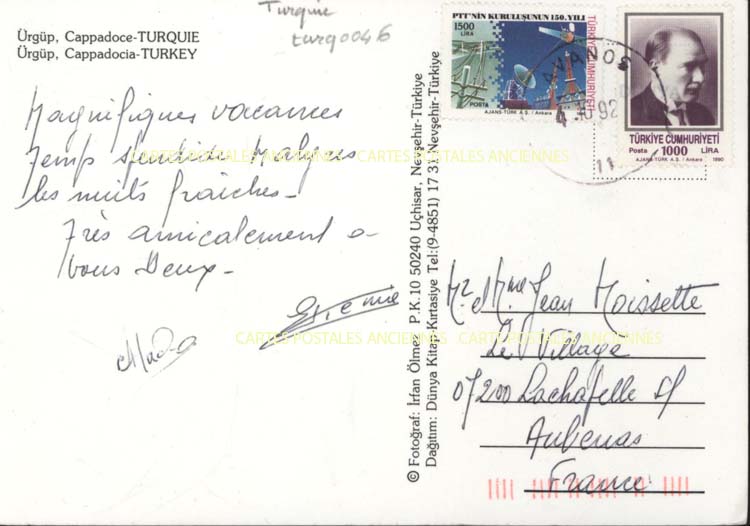 Ürgüp, Cappadoce-TURQUIE
Ürgüp, Cappadocia-TURKEY
Turquie
turq0046
Magnifiques vacances
Temps splendide Malgres
les nuits fraîches-
Très amicalement a
vous Deux-
Etienne
© Fotoğraf: İrfan Ölmez P.K.10 50240 Uçhisar, Nevşehir-Türkiye
Dağıtım: Dünya Kitap-Kırtasiye Tel:(9-4851) 17 31 Nevşehir-Türkiye
PTT'NİN KURULUŞUNUN 150.YILI
1500
LİRA
TÜRKİYE CUMHURİYETİ
POSTA
AJANS-TÜRK A.Ş. / Ankara
AVANOS
4 10 92
11
TÜRKİYE CUMHURİYETİ
Posta 1000 LİRA
AJANS-TÜRK A.Ş. / Ankara 1990
Mr et Mme Jean Moissette
Le Village
07200 Lachapelle s/
Aubenas
France
CARTES POSTALES ANCIENNES CARTES POSTALES ANCIENNES
CARTES POSTALES ANCIENNES CARTES POSTALES ANCIENNES